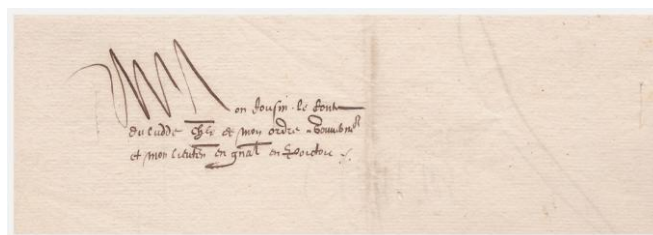 Mon Cousin le Conte
du Ludde chlr de mon ordre Gouverneur
et mon lieuten en gnal en Poictou